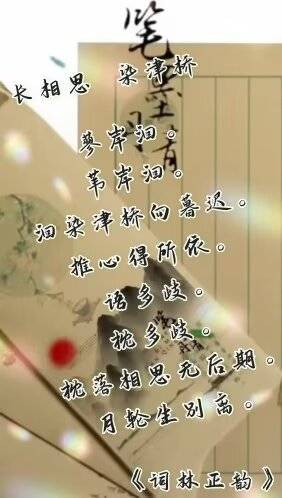 笔墨情
长相思 染津桥
蓼岸洄。
苇岸洄。
洄染津桥向暮迟。
推心得所依。
语多歧。
枕多歧。
枕落相思无后期。
月轮生别离。
《词林正韵》